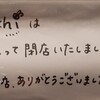 chi は
って閉店いたしまし
店、ありがとうございまし